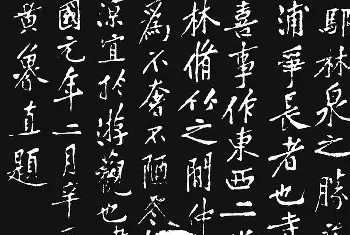 林泉之勝
浦爭長者也寺
喜事作東西二
林脩竹之間仲
為不奢不陋冬
涼宜於游觀也
國元年二月辛
黃魯直題